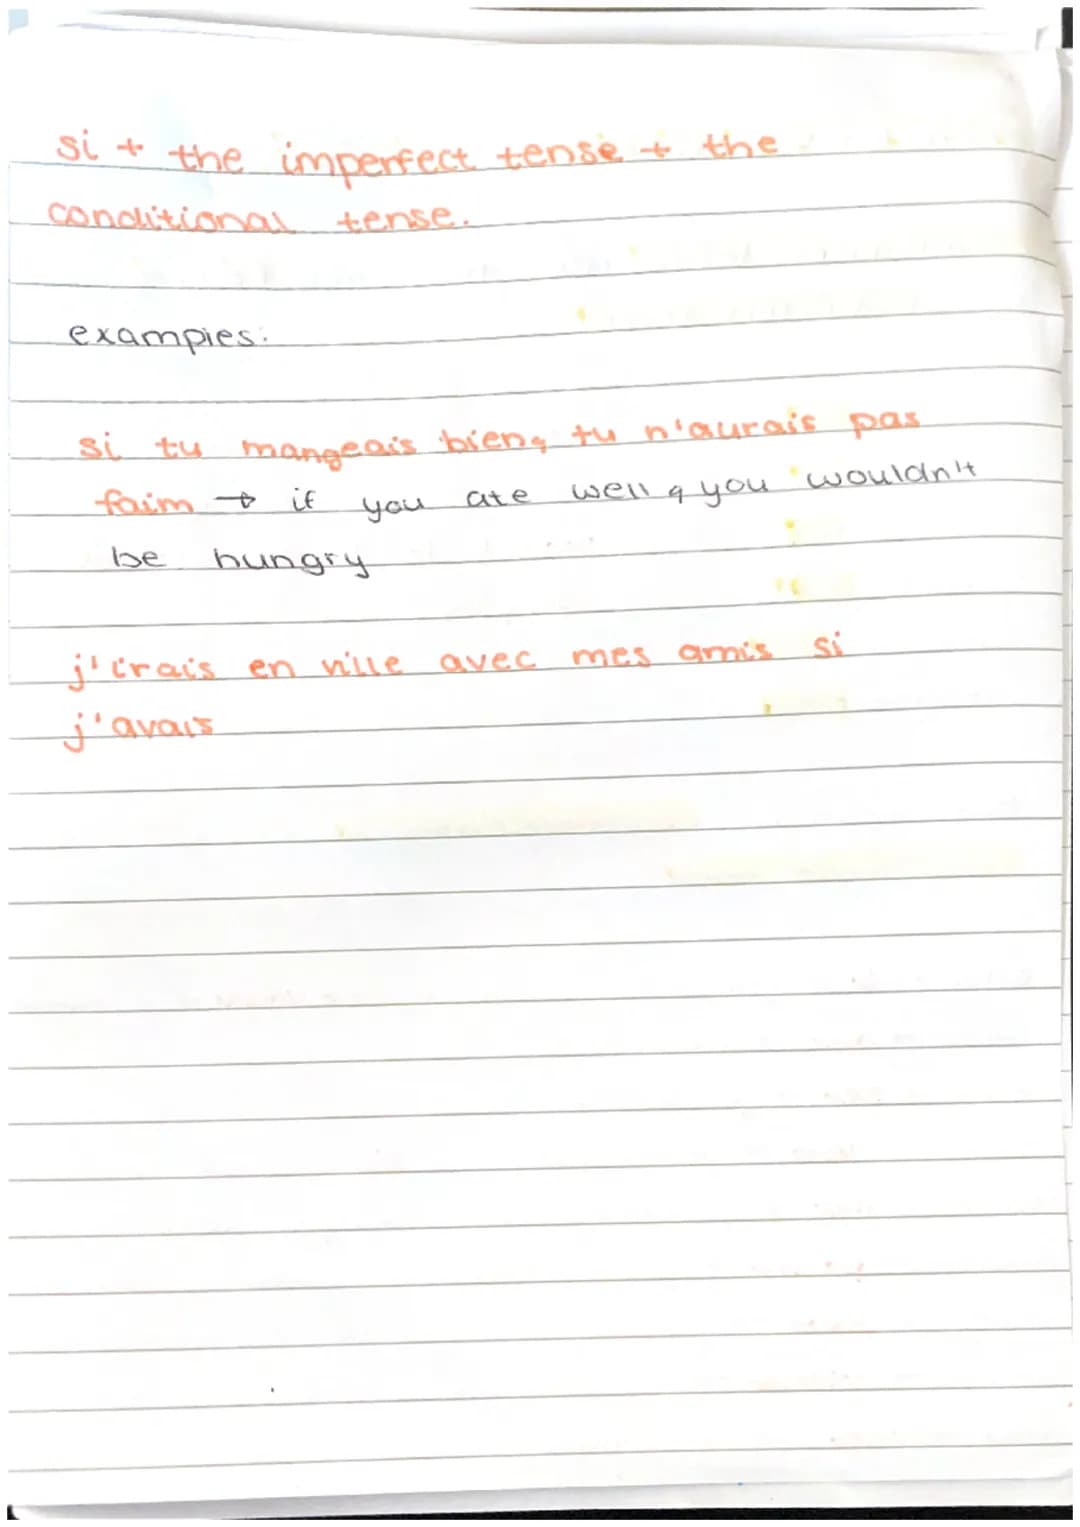 si + the imperfect tense + the
conditional tense.
examples:
si tu mangeais bien, tu n'aurais pas
faim → if you ate well, you wouldn't
be hungry
j'irais en ville avec mes amis si
j'avais